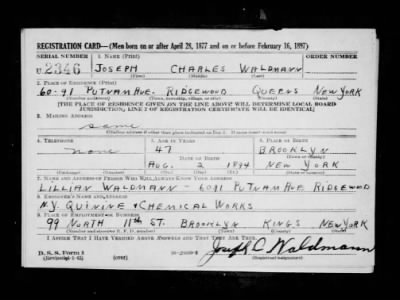 REGISTRATION CARD—(Men born on or after April 28, 1877 and on or before February 16, 1897)
SERIAL NUMBER 1. NAME (Print) ORDER NUMBER
U 2346 JOSEPH CHARLES WALDMANN
(First) (Middle) (Last)
2. PLACE OF RESIDENCE (Print)
60-91 PUTNAM AVE. RIDGEWOOD QUEENS NEW YORK
(Number and street) (Town, township, village, or city) (County) (State)
[THE PLACE OF RESIDENCE GIVEN ON THE LINE ABOVE WILL DETERMINE LOCAL BOARD
JURISDICTION; LINE 2 OF REGISTRATION CERTIFICATE WILL BE IDENTICAL]
3. MAILING ADDRESS
same
[Mailing address if other than place indicated on line 2. If same insert word same]
4. TELEPHONE 5. AGE IN YEARS 6. PLACE OF BIRTH
none 47 BROOKLYN
DATE OF BIRTH (Town or county)
AUG. 2 1894 NEW YORK
(Exchange) (Number) (Mo.) (Day) (Yr.) (State or country)
7. NAME AND ADDRESS OF PERSON WHO WILL ALWAYS KNOW YOUR ADDRESS
LILLIAN WALDMANN — 6091 PUTNAM AVE RIDGEWOOD
8. EMPLOYER'S NAME AND ADDRESS
N.Y. QUININE & CHEMICAL WORKS
9. PLACE OF EMPLOYMENT OR BUSINESS
99 NORTH 11TH ST. BROOKLYN KINGS NEW YORK
(Number and street or R. F. D. number) (Town) (County) (State)
I AFFIRM THAT I HAVE VERIFIED ABOVE ANSWERS AND THAT THEY ARE TRUE.
Joseph C Waldmann
D. S. S. Form 1 (over)
(Registrant's signature)